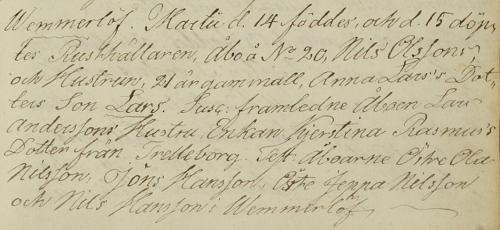 Wemmerlöf. Martii d. 14 föddes, och d. 15 döp-
tes Rusthållaren, Åbo å No 20, Nils Olssons
och Hustrun, 21 år gammall, Anna Lars's Dot-
ters Son Lars. Susc: framledne Åboen Lars
Anderssons Hustru, Enkan, Kjerstina Rasmus's
Dotter från Trelleborg. Test. Åboarne Östre Ola
Nilsson, Jöns Hansson, Östre Jeppa Nilsson
och Nils Hansson i Wemmerlöf.